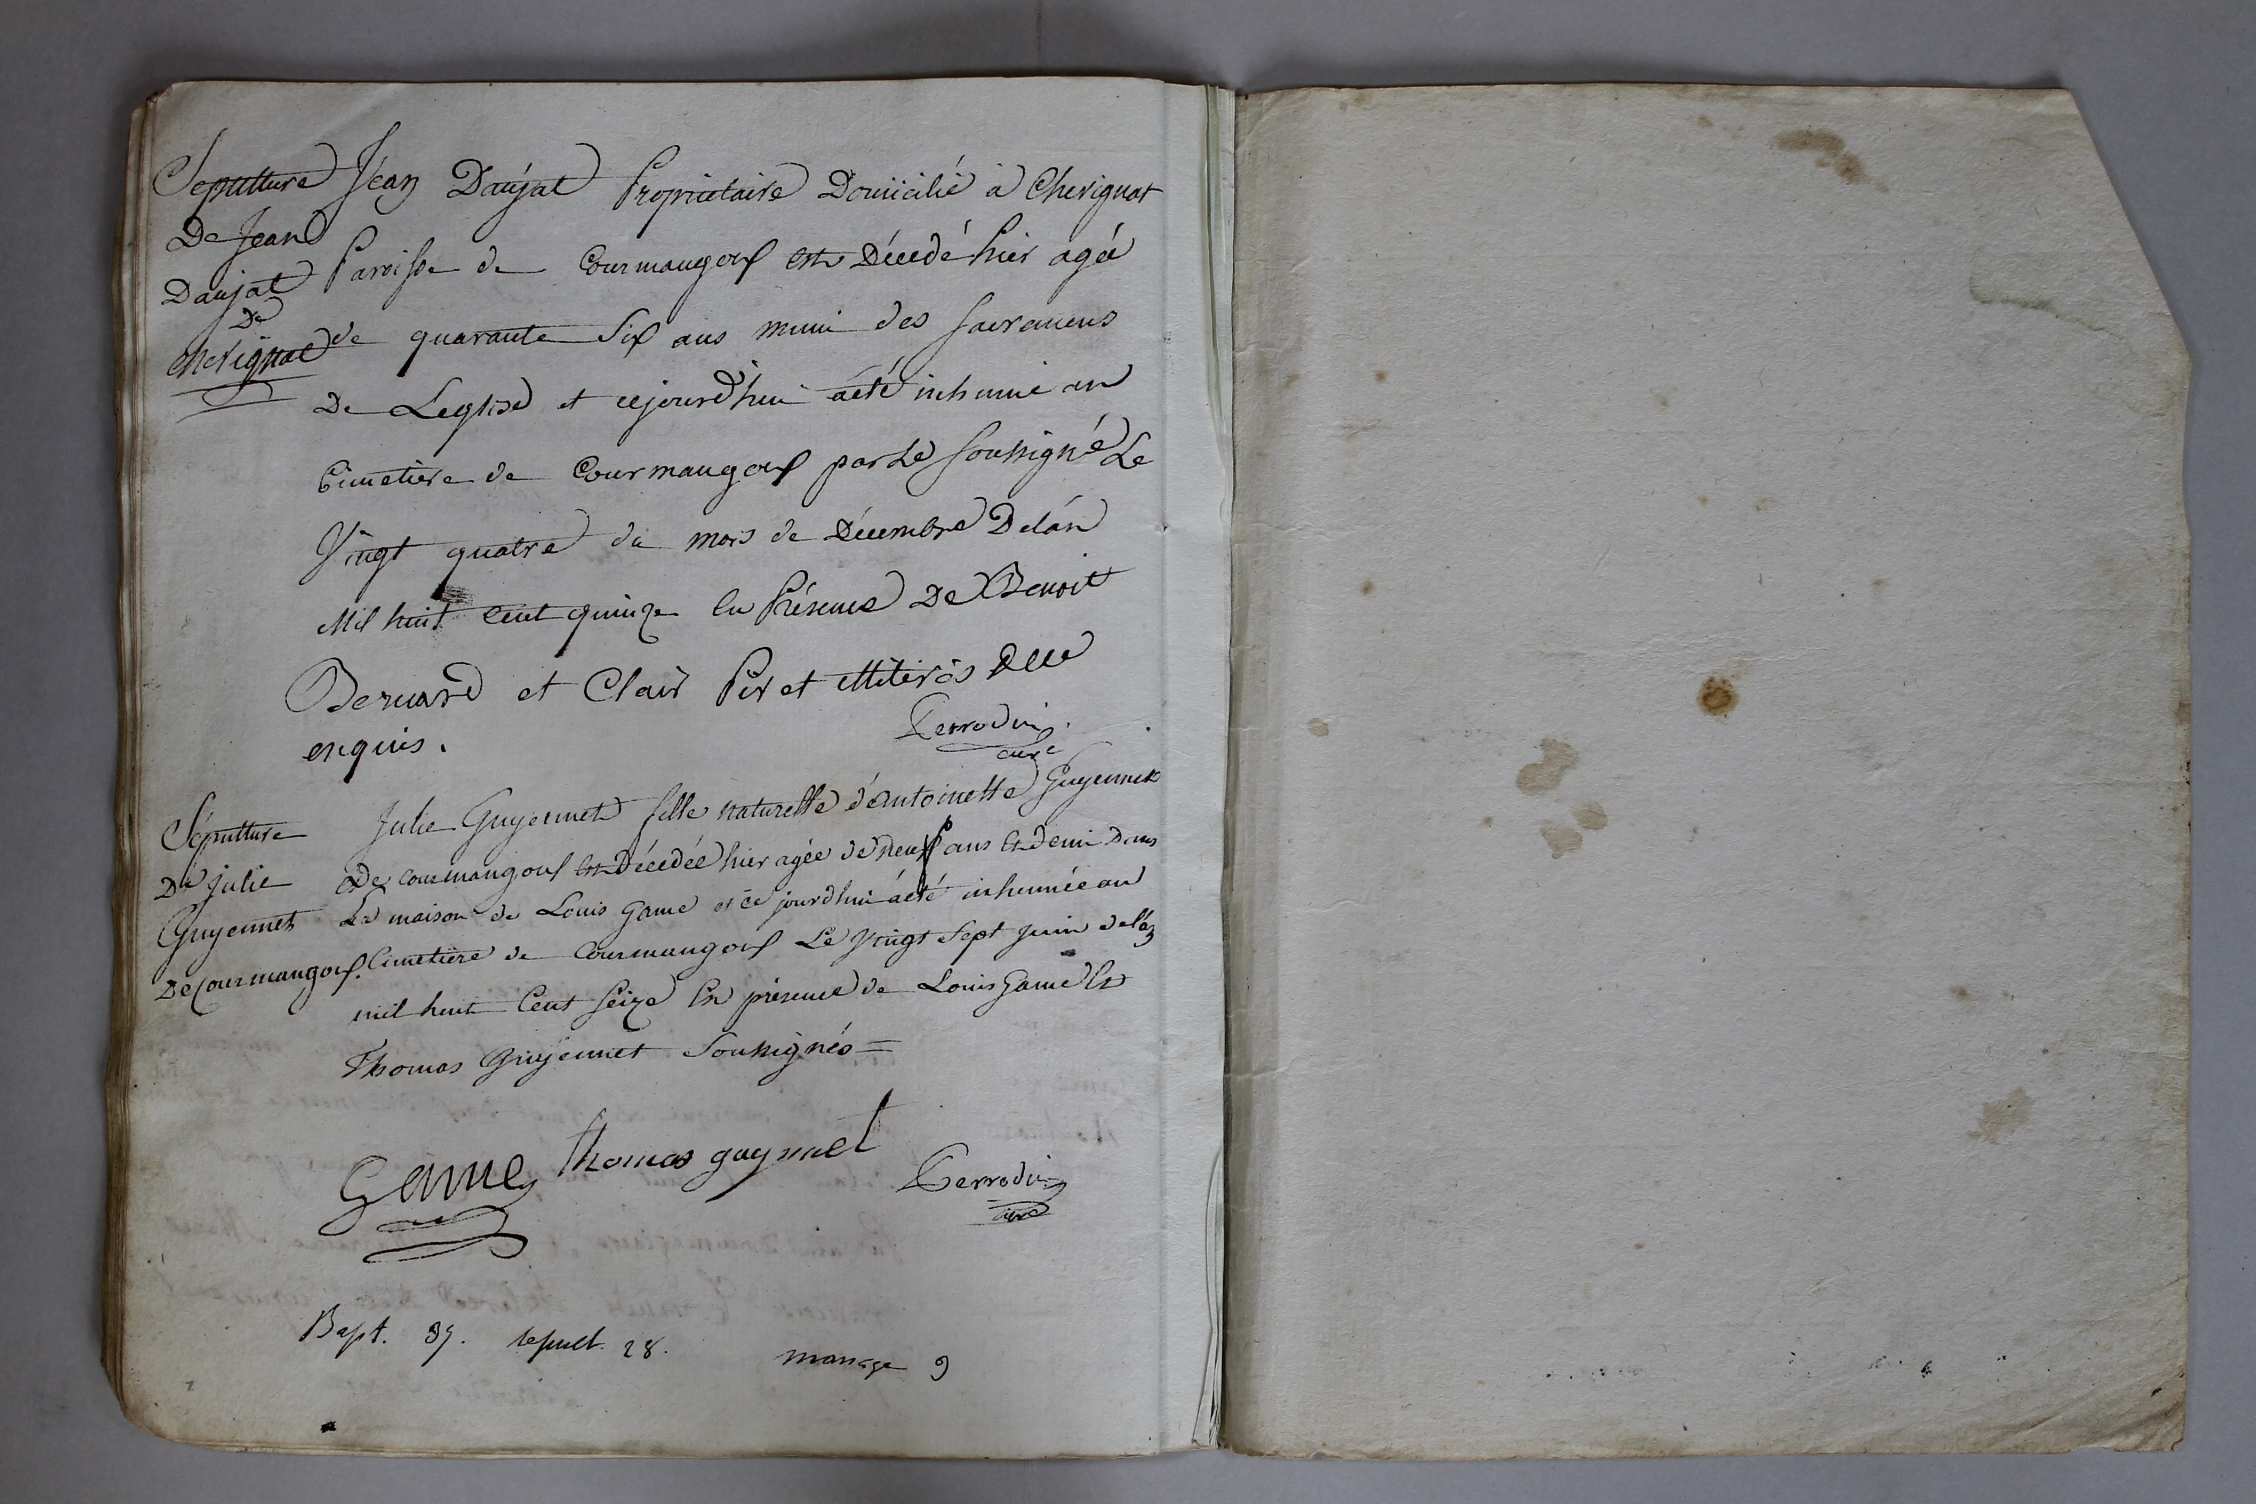 Sépultture
De Jean
Daujat
De
cherignat
Jéan Daujat Propriétaire Domicilié à Cherignat
Paroisse de Courmangoux est Décedé hier agée
de quarante Six ans muni des sacremens
De Leglise et cejourd'hui àété inhumé au
Cimetière de Courmangoux par Le soussigné Le
Vingt quatre du mois de Décembre De lán
Mil huit cent quinze en Présence De Benoit
Bernard et Clair Piret illitérés De ce
enquis.
Perrodin
curé
Sépultture
De julie
Guyennet
De courmangoux.
Julie Guyennet fille naturelle d'antoinette Guyennet
De courmangoux est Décedée hier agée de neuf ans et demi Dans
La maison de Louis Game et ce jourd'hui áeté inhumée au
Cimetière de Courmangoux Le Vingt Sept juin de lán
mil huit Cent Seize En présence de Louis Game Et
Thomas Guyennet Soussignés =
Game
thomas guynnet
Perrodin
curé
Bapt. 37. sepult. 28. mariage 9